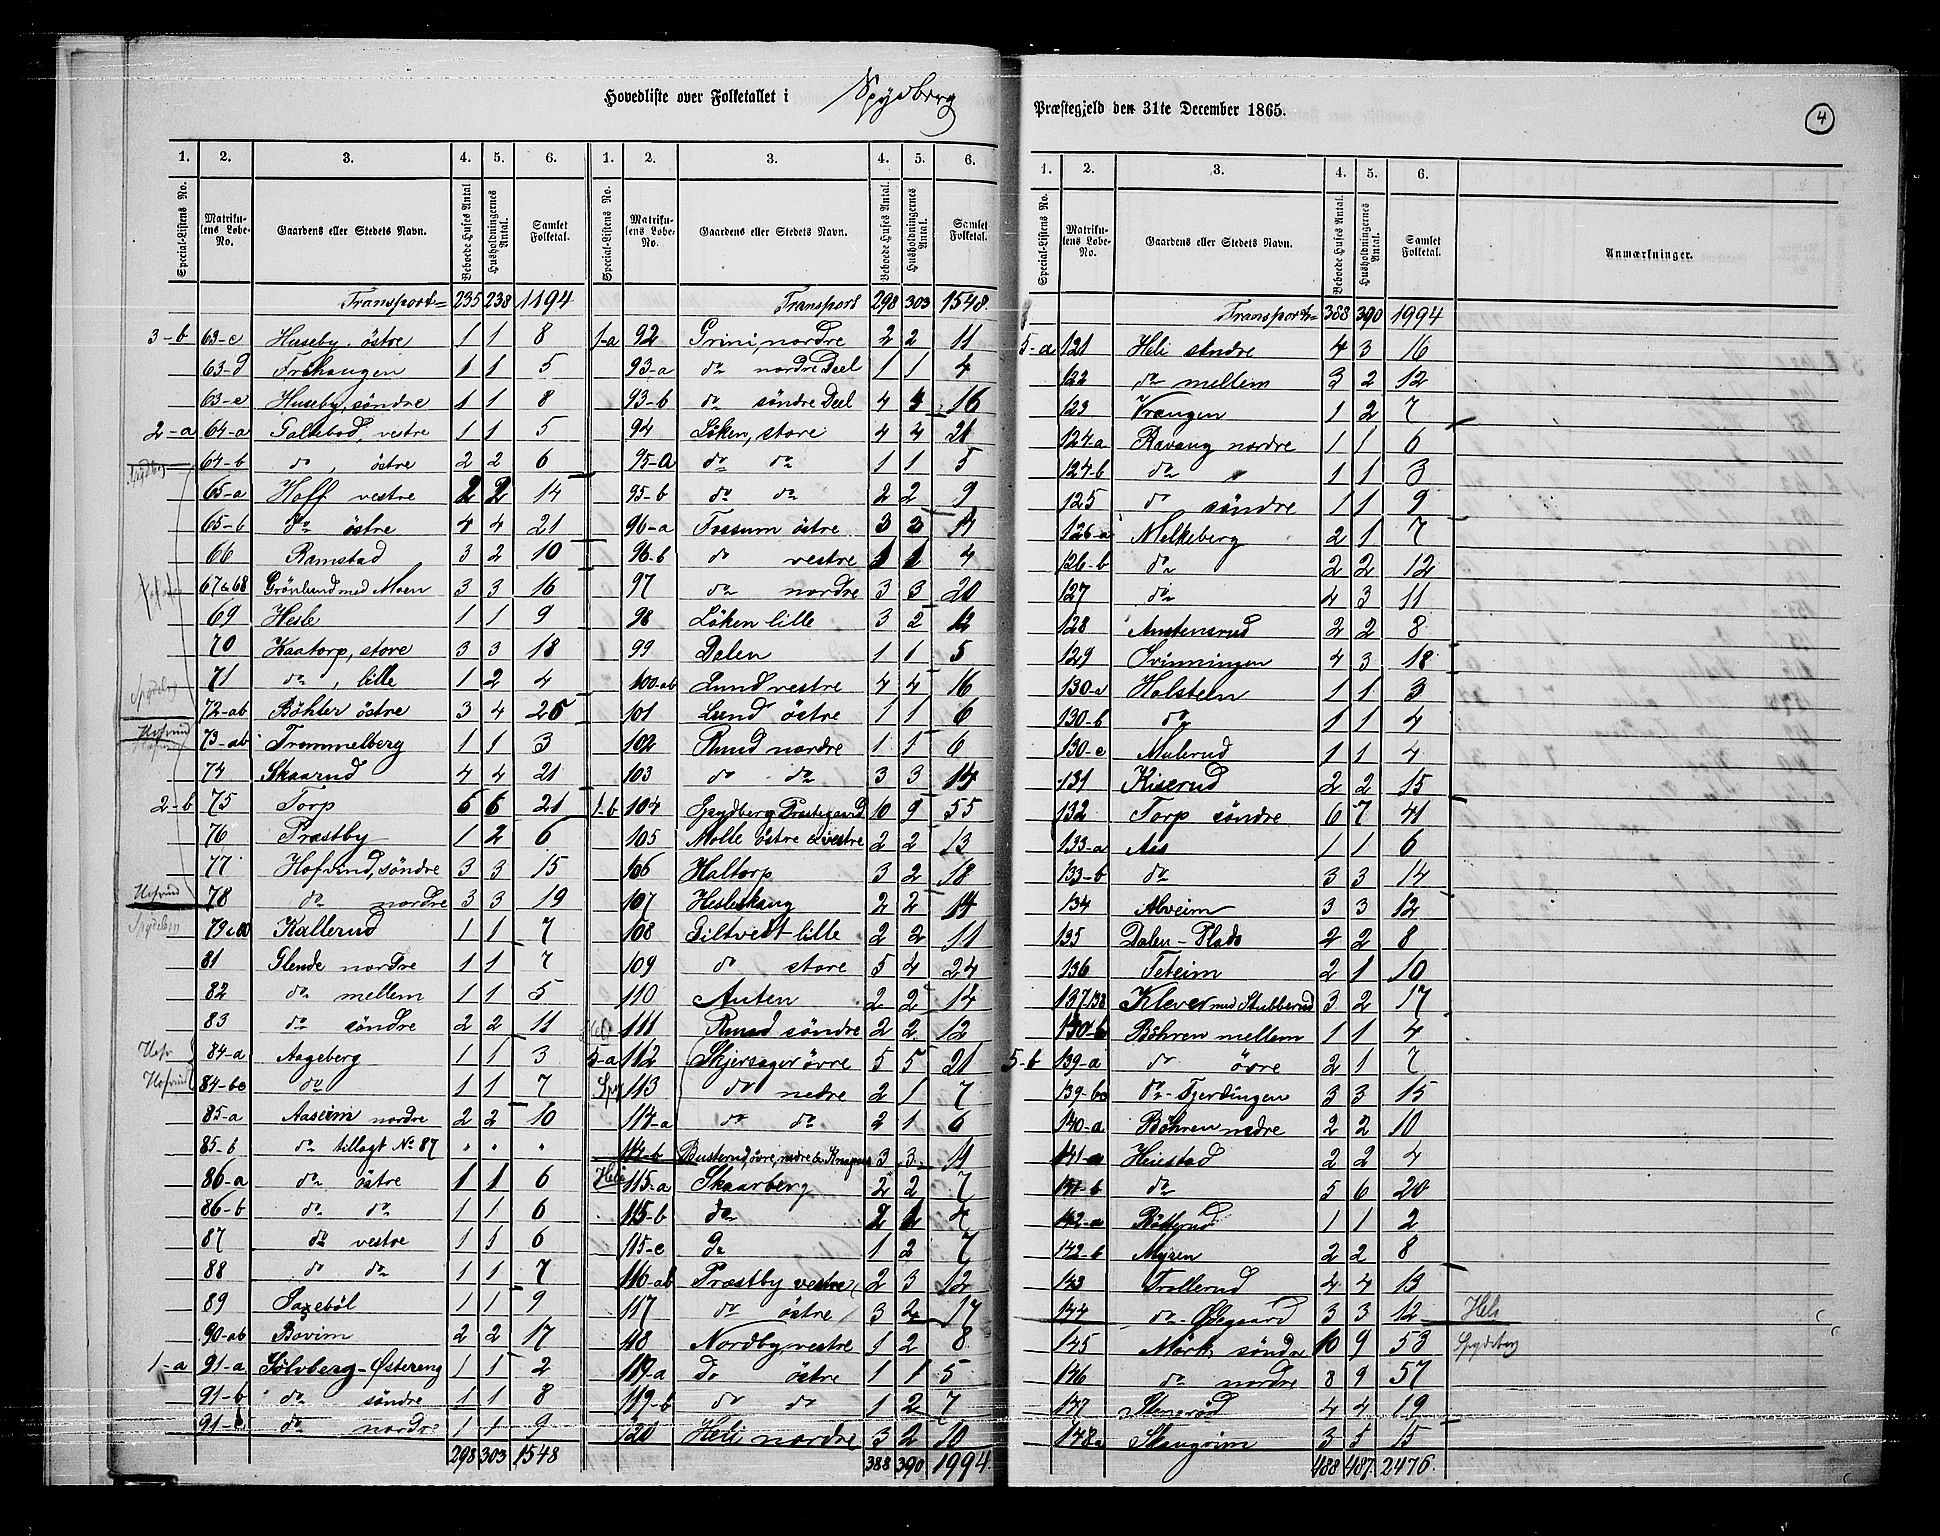 Hovedliste over Folketallet i Spydberg Præstegjeld den 31te December 1865.
4
1. 2. 3. 4. 5. 6.
Special-Listens No. Matrikulens Løbe-No. Gaardens eller Stedets Navn. Beboede Huses Antal Husholdningernes Antal. Samlet Folketal.
Transport= 235 238 1194
3-b 63-c Huseby. östre 1 1 8
63-d Frihaugen 1 1 5
63-e Huseby, söndre 1 1 8
2-a 64-a Taltebod, vestre 1 1 5
64-b do, östre 2 2 6
65-a Hoff vestre 2 2 14
65-b do östre 4 4 21
66 Ramstad 3 2 10
67 & 68 Grönlund med Moen 3 3 16
69 Hesle 1 1 9
70 Kaatorp, store 3 3 18
71 do, lille 1 2 4
72-ab Böhler östre 3 4 25
73-ab Trommelberg 1 1 3
74 Skaarud 4 4 21
2-b 75 Torp 6 6 21
76 Præstby 1 2 6
77 Hofvind, söndre 3 3 15
78 do nordre 3 3 19
79 & 80 Kallerud 1 1 7
81 Glende nordre 1 1 7
82 do mellem 1 1 5
83 do söndre 2 2 11
84-a Aageberg 1 1 3
84-bc do 1 1 7
85-a Aaseim nordre 2 2 10
85-b do tillagt No 87 " " "
86-a do östre 1 1 6
86-b do do 1 1 6
87 do vestre 1 1 6
88 do do 1 1 7
89 Saxeböl 1 1 9
90-ab Bovim 2 2 17
1-a 91-a Sölvberg-Østereng 1 1 2
91-b do söndre 1 1 8
91-c do nordre 1 1 9
298 303 1548
1. 2. 3. 4. 5. 6.
Special-Listens No. Matrikulens Løbe-No. Gaardens eller Stedets Navn. Beboede Huses Antal Husholdningernes Antal. Samlet Folketal.
Transport 298 303 1548
1-a 92 Grini, nordre 2 2 11
93-a do nordre Deel 1 1 4
93-b do söndre Deel 4 4 16
94 Löken, store 4 4 21
95-a do do 1 1 5
95-b do do 2 2 9
96-a Fossum östre 3 3 14
96-b do vestre 1 1 4
97 do nordre 3 3 20
98 Löken lille 3 2 12
99 Dalen 1 1 5
100-ab Lund vestre 4 4 16
101 Lund östre 1 1 6
102 Ruud nordre 1 1 6
103 do do 3 3 14
1-b 104 Spydberg Præstegaard 10 9 55
105 Molle östre & vestre 2 2 13
106 Haltorp 3 2 18
107 Hesleskaug 2 2 14
108 Giltvedt lille 2 2 11
109 do store 5 4 24
110 Auten 2 2 14
111 Ruud söndre 2 2 12
5-a 112 Skjersager övre 5 5 21
113 do nedre 2 1 7
114-a do do 2 1 6
114-b Busterud, övre, nedre & Knapper 3 3 11
115-a Skaarberg 2 2 7
115-b do 2 2 7
115-c do 1 2 7
116-ab Præstby vestre 2 3 12
117 do östre 3 4 17
118 Nordby vestre 1 2 8
119-a do östre 1 1 5
119-b do do 1 2 7
120 Heli nordre 3 2 10
388 390 1994
1. 2. 3. 4. 5. 6.
Special-Listens No. Matrikulens Løbe-No. Gaardens eller Stedets Navn. Beboede Huses Antal. Husholdningernes Antal. Samlet Folketal. Anmærkninger.
Transport= 388 390 1994
5-a 121 Heli söndre 4 3 16
122 do mellem 3 2 12
123 Vrangen 1 2 7
124-a Ravaug nordre 1 1 6
124-b do " 1 1 3
125 do söndre 1 1 9
126-a Melkeberg 2 1 7
126-b do 2 2 12
127 do 4 3 11
128 Austensrud 2 2 8
129 Svinningen 4 3 18
130-a Holsteen 1 1 3
130-b do 1 1 4
130-c Mulerud 1 1 4
131 Kiserud 2 2 15
132 Torp söndre 6 7 41
133-a Aas 1 1 6
133-b do 3 3 14
134 Alveim 3 3 12
135 Dalen-Plads 2 2 8
136 Teteim 2 1 10
137/138 Klever med Stubberud 3 2 17
Böhren mellem 1 1 4
5-b 139-a do övre 2 1 7
139-bc do-Fjerdingen 3 3 15
140-a Böhren nedre 2 2 10
141-a Heiestad 2 2 4
141-b do 5 6 20
142-a Böllerud 1 1 2
142-b Myren 2 2 8
143 Trollerud 4 4 13
144 do-Ødegaard 3 3 12 Heli
145 Mörk, söndre 10 9 53 Spydeberg
146 do nordre 8 9 57
147 Stensröd 4 4 19
148a Skaugrim 3 5 15
488 487 2476
Spydberg
Hofvind
Hofvind
Spydeberg
Hofvind
Heli